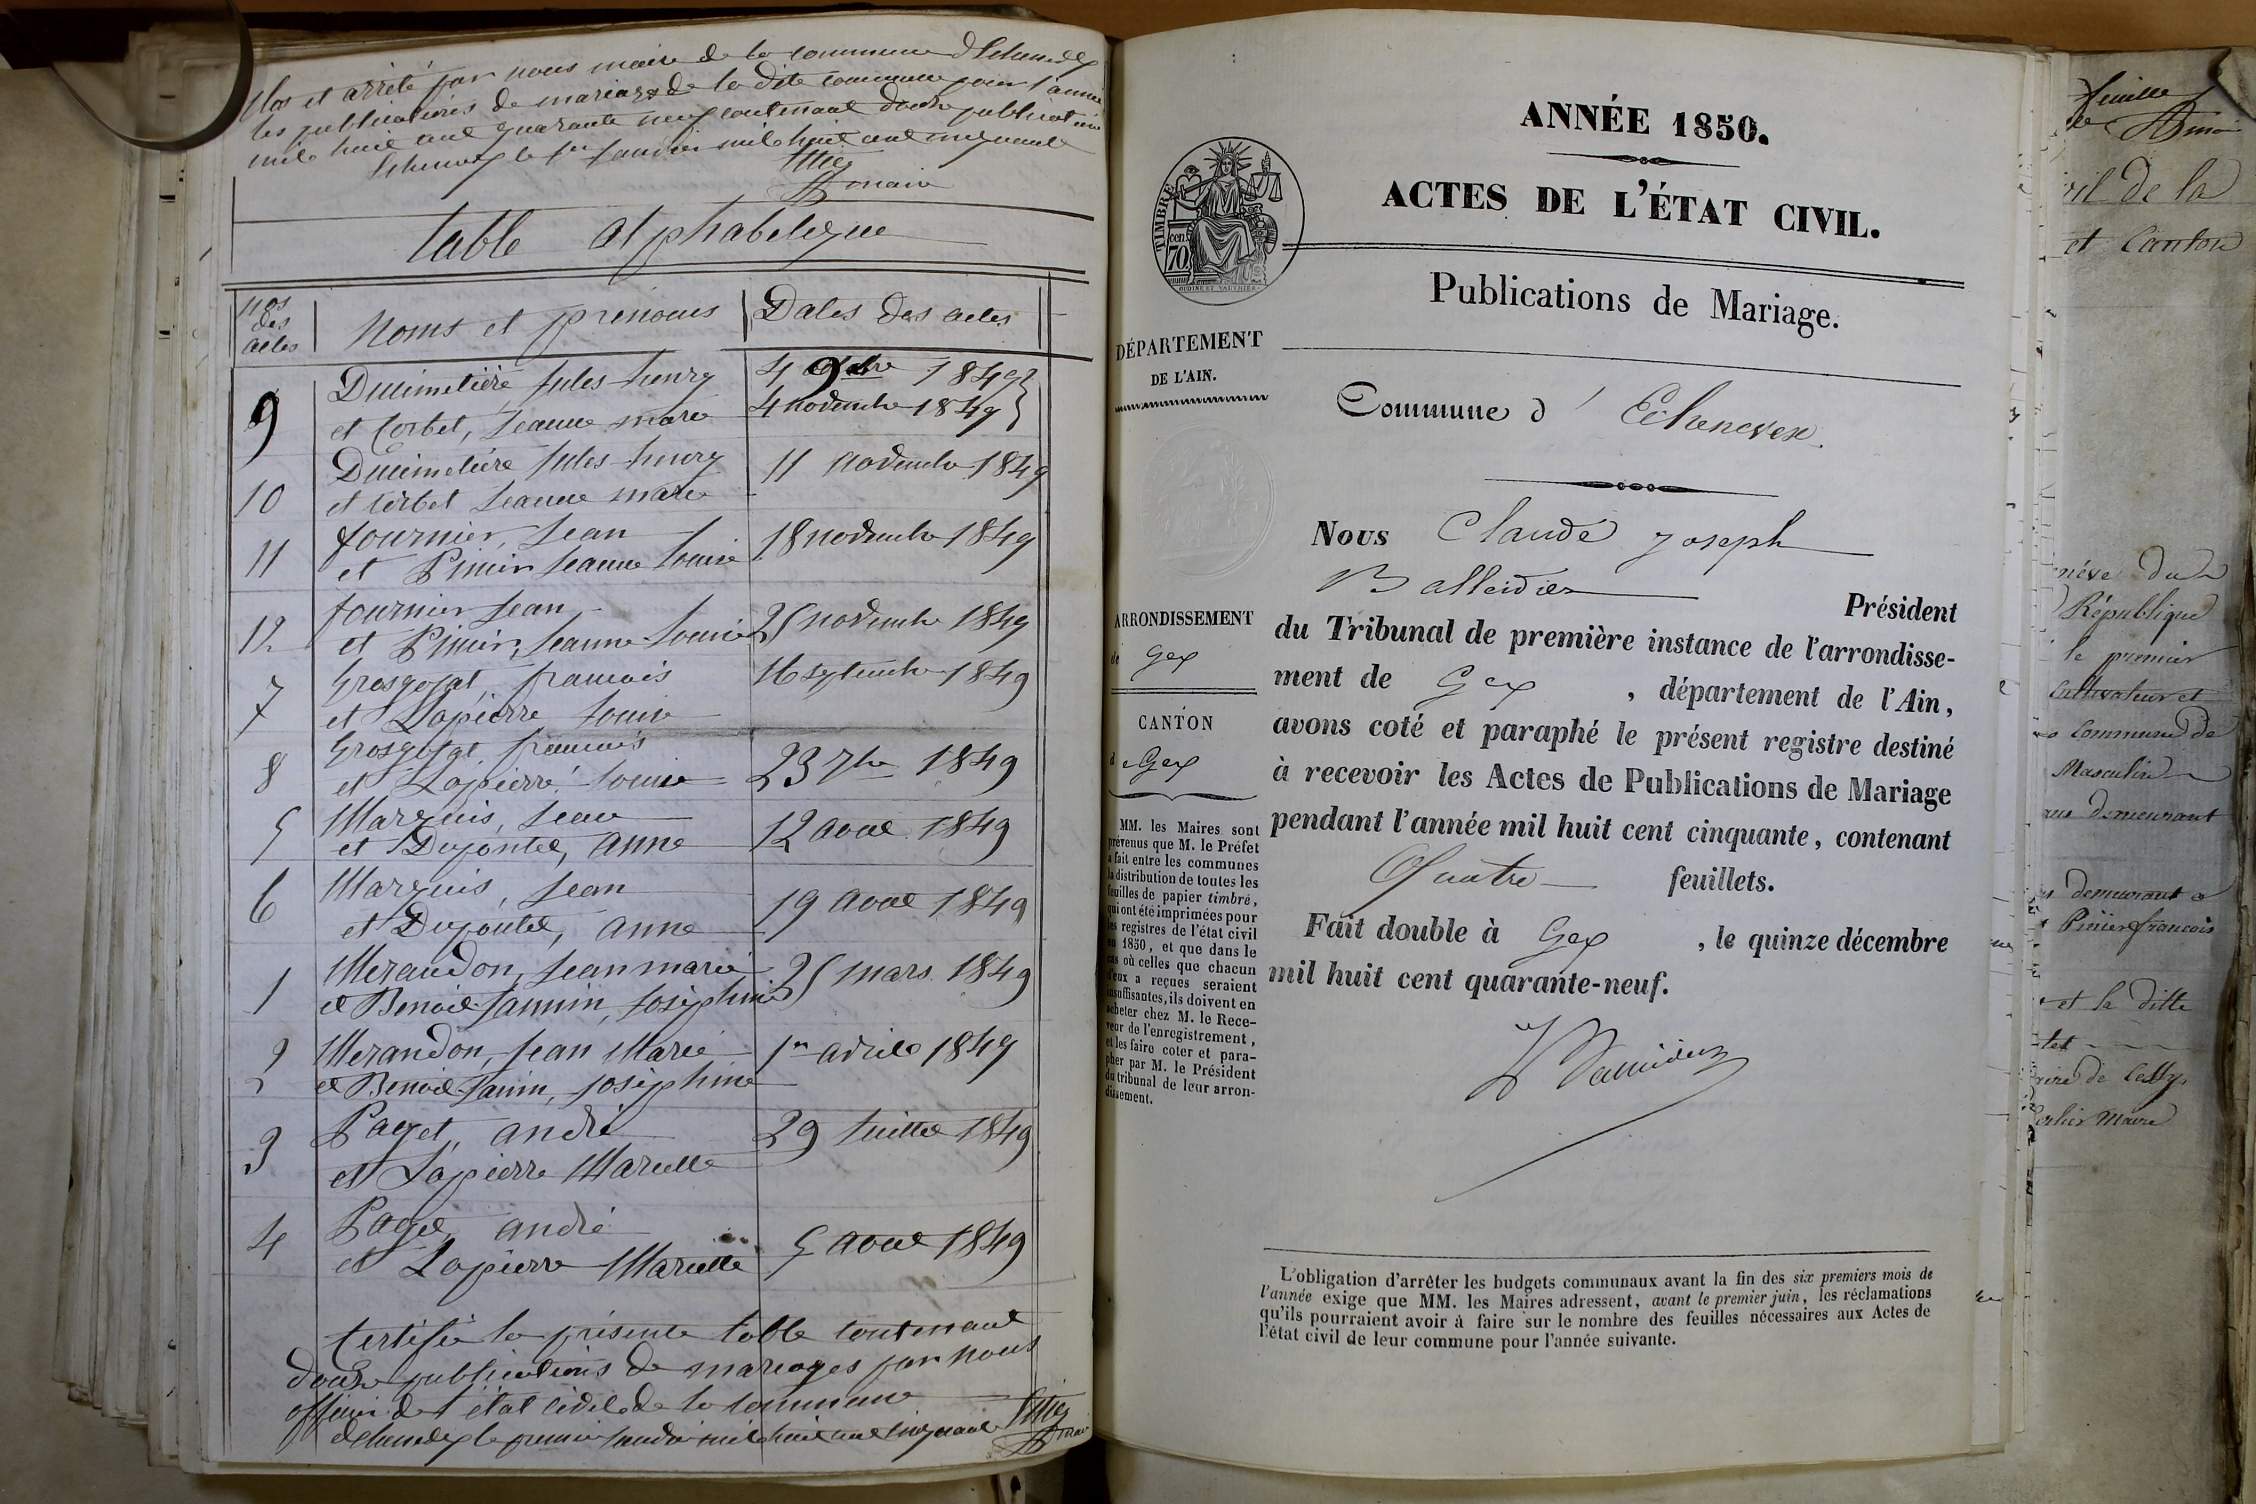 Clos et arrêté par nous maire de la commune d'Echenevex
les publications de mariage de la dite commune pour l'année
mile huit cent quarante neuf contenant douze publications
Echenevex le 1er Janvier mil huit cent cinquante
maire
table alphabetique
nos des actes
Noms et prénoms
Dates des actes
9
Ducimetière Jules henry
et Corbet, Jeanne marie
4 9bre 1849
4 novembre 1849
10
Ducimetière Jules henry
et Corbet Jeanne marie
11 novembre 1849
11
fournier, Jean
et Pinier Jeanne Louise
18 novembre 1849
12
fournier Jean
et Pinier, Jeanne Louise
25 novembre 1849
7
Grosgojat, francois
et Lapierre Louise
16 septembre 1849
8
Grosgojat, francois
et Lapierre Louise
23 7bre 1849
5
Marquis, Jean
et Dupontet, anne
12 aout 1849
6
Marquis, Jean
et Dupontet, anne
19 aout 1849
1
Merandon, Jean marie
et Benoit Jannin, Joséphine
25 mars 1849
2
Merandon, Jean Marie
et Benoit Janin, Joséphine
1er avrile 1849
3
Paget, andré
et Lapierre Mariette
29 Juillet 1849
4
Paget, andré
et Lapierre Mariette
5 aout 1849
Certifié la présente table contenant
douze publications de mariages par nous
officier de l'état civile de la commune
d'Echenevex le premier Janvier mil huit cent cinquante
maire
ANNÉE 1850.
ACTES DE L'ÉTAT CIVIL.
TIMBRE
cen. 70
OUDINE ET VAUTHIER
Publications de Mariage.
DÉPARTEMENT
DE L'AIN.
Commune d'Echenevex.
Nous Claude Joseph
Balleidier Président
du Tribunal de première instance de l'arrondisse-
ment de Gex, département de l'Ain,
avons coté et paraphé le présent registre destiné
à recevoir les Actes de Publications de Mariage
pendant l'année mil huit cent cinquante, contenant
Quatre feuillets.
Fait double à Gex, le quinze décembre
mil huit cent quarante-neuf.
ARRONDISSEMENT
de Gex
CANTON
de Gex
MM. les Maires sont
prévenus que M. le Préfet
a fait entre les communes
la distribution de toutes les
feuilles de papier timbré,
qui ont été imprimées pour
les registres de l'état civil
en 1850, et que dans le
cas où celles que chacun
d'eux a reçues seraient
insuffisantes, ils doivent en
acheter chez M. le Rece-
veur de l'enregistrement,
et les faire coter et para-
pher par M. le Président
du tribunal de leur arron-
dissement.
L'obligation d'arrêter les budgets communaux avant la fin des six premiers mois de
l'année exige que MM. les Maires adressent, avant le premier juin, les réclamations
qu'ils pourraient avoir à faire sur le nombre des feuilles nécessaires aux Actes de
l'état civil de leur commune pour l'année suivante.
feuille
de la
et Canton
du
République
le premier
Cultivateur et
Commune de
Masculin
demeurant
demeurant a
Pinier francois
et la ditte
de Cessy
Maire